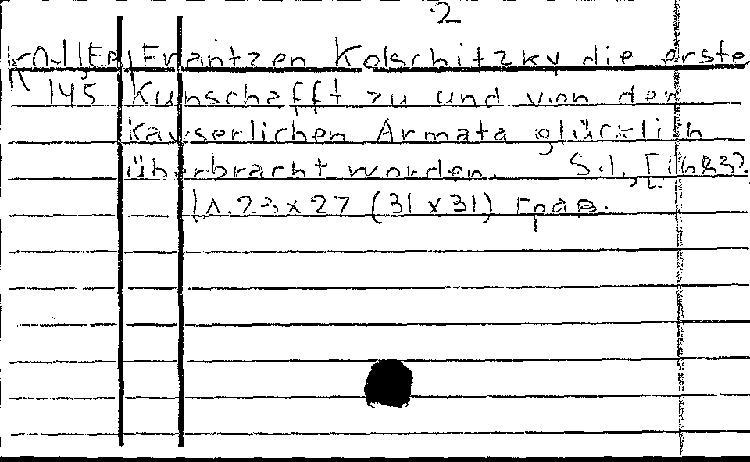 2
Frantzen Kolschitzky die erste
145 Kunschafft zu und von der
Kayserlichen Armata glücklich
überbracht worden. S.l., [1683].
1 л. 23x27 (31x31) грав.